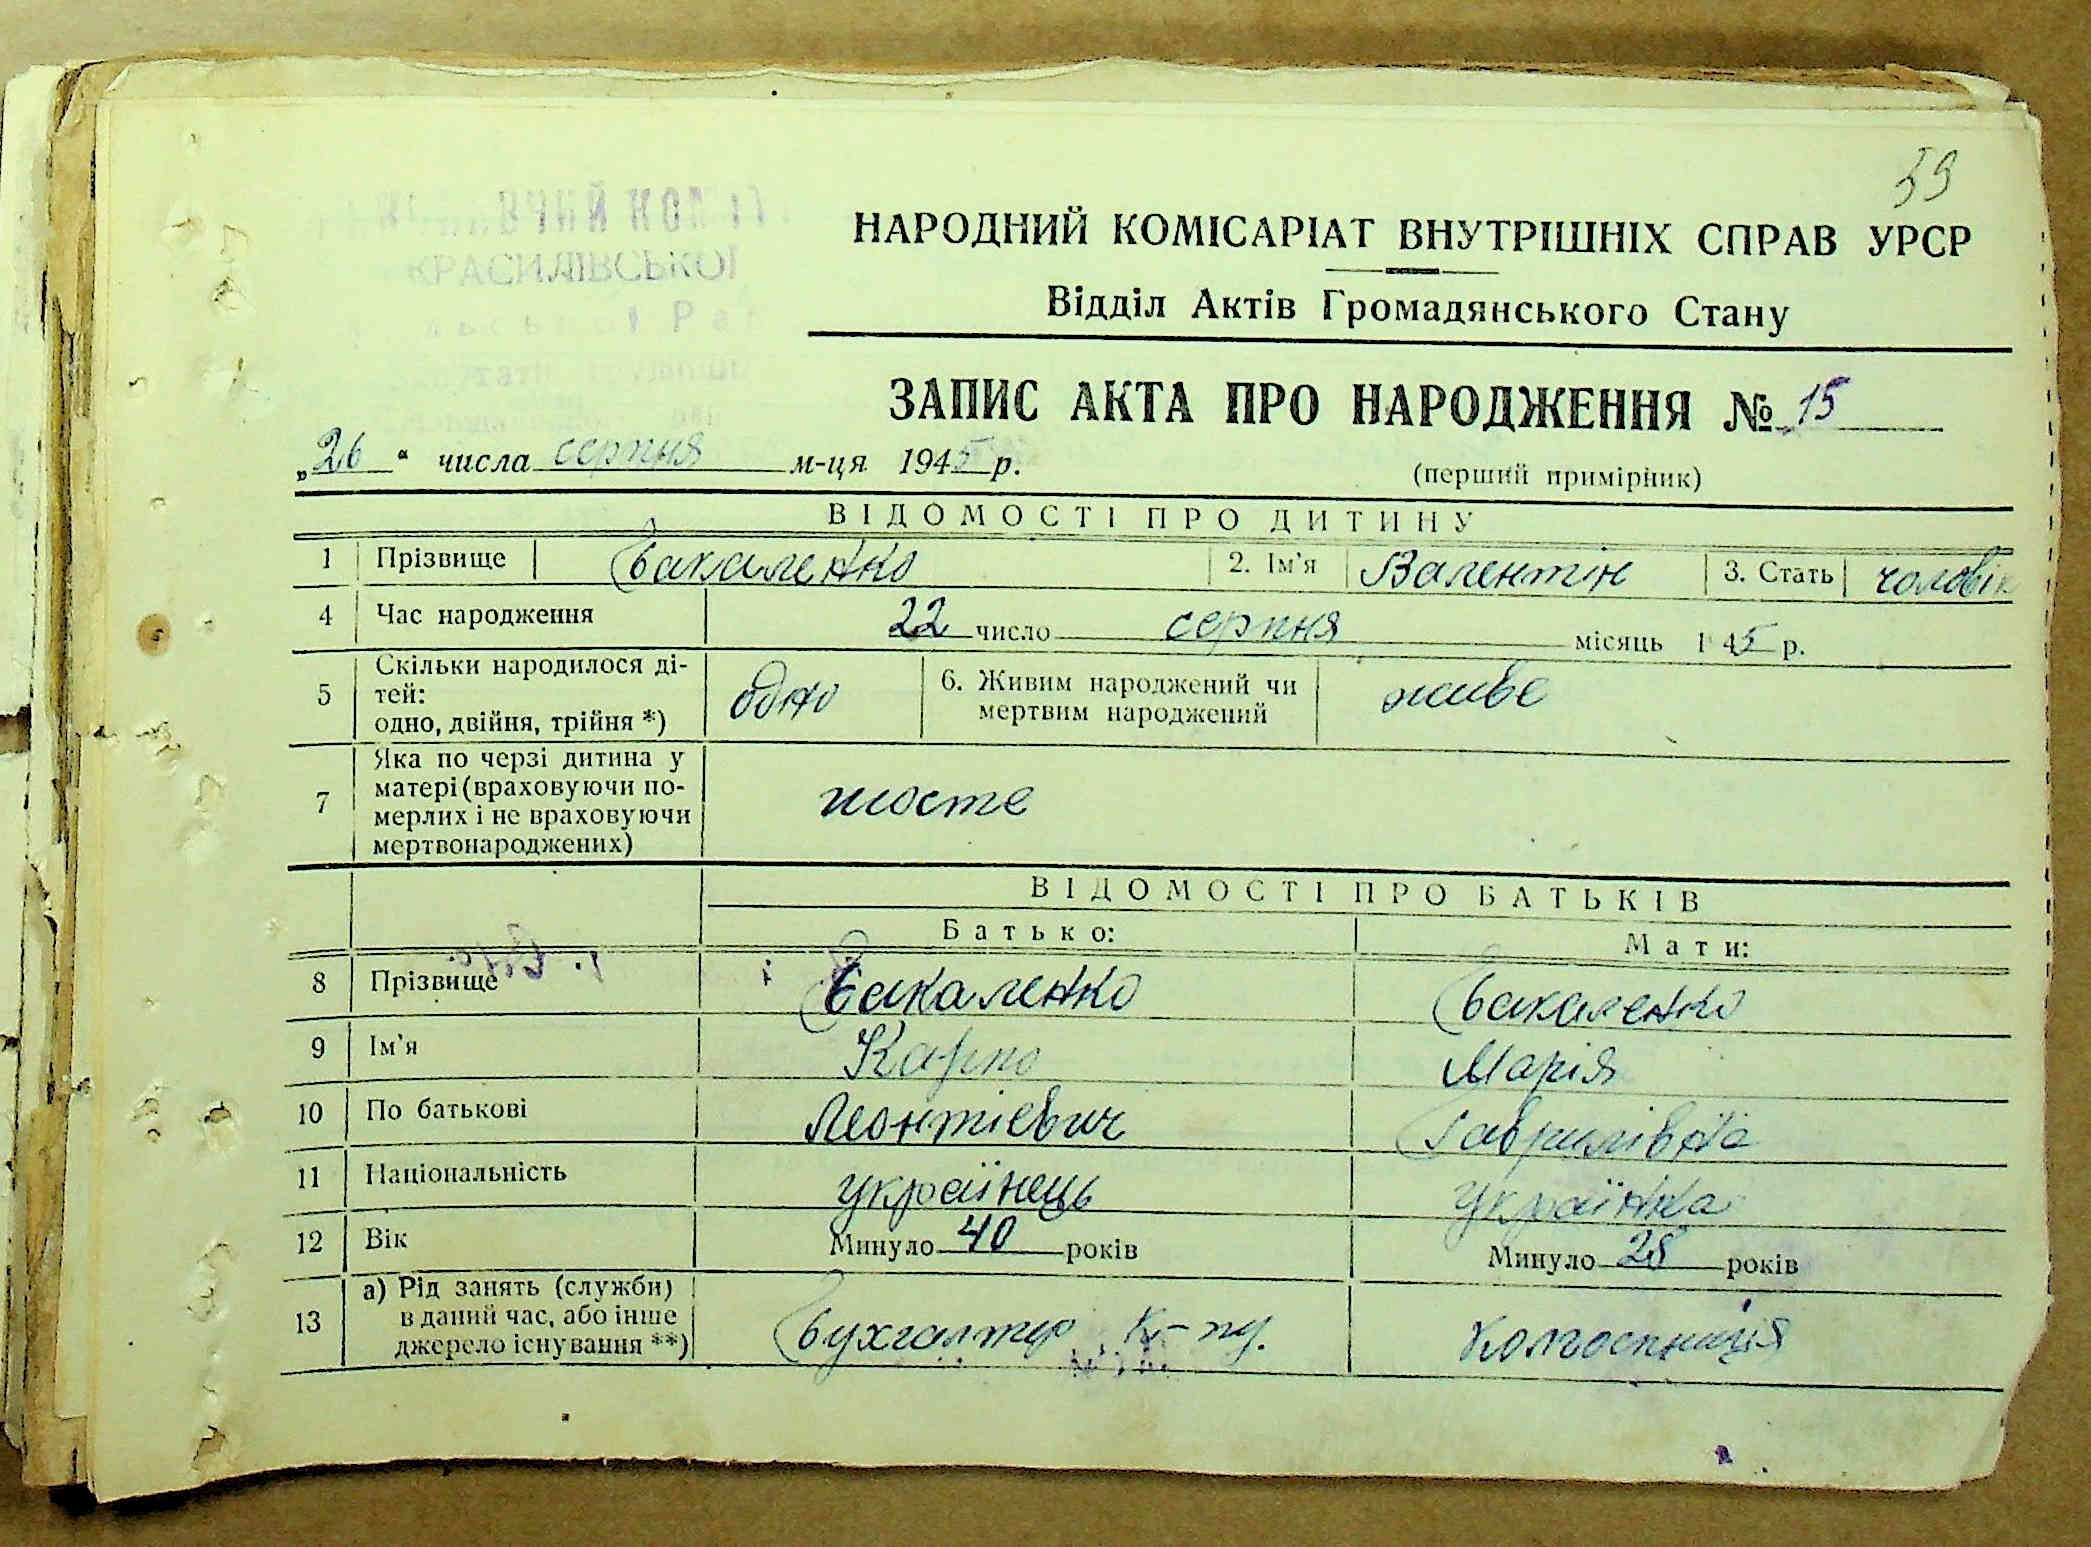 59
НАРОДНИЙ КОМІСАРІАТ ВНУТРІШНІХ СПРАВ УРСР
Відділ Актів Громадянського Стану
КРАСИЛІВСЬКОЇ
ЗАПИС АКТА ПРО НАРОДЖЕННЯ № 15
„26“ числа серпня м-ця 1945 р.
(перший примірник)
ВІДОМОСТІ ПРО ДИТИНУ
1 Прізвище Бакаленко 2. Ім'я Валентін 3. Стать чоловік
4 Час народження 22 число серпня місяць 1945 р.
5 Скільки народилося ді-
тей:
одно, двійня, трійня *) одно
6. Живим народжений чи
мертвим народжений живе
7 Яка по черзі дитина у
матері (враховуючи по-
мерлих і не враховуючи
мертвонароджених) шосте
ВІДОМОСТІ ПРО БАТЬКІВ
Батько: Мати:
8 Прізвище Бакаленко Бакаленко
9 Ім'я Карпо Марія
10 По батькові Леонтієвич Гаврилівна
11 Національність українець українка
12 Вік Минуло 40 років Минуло 28 років
13 а) Рід занять (служби)
в даний час, або інше
джерело існування **) Бухгалтер Колгоспниця